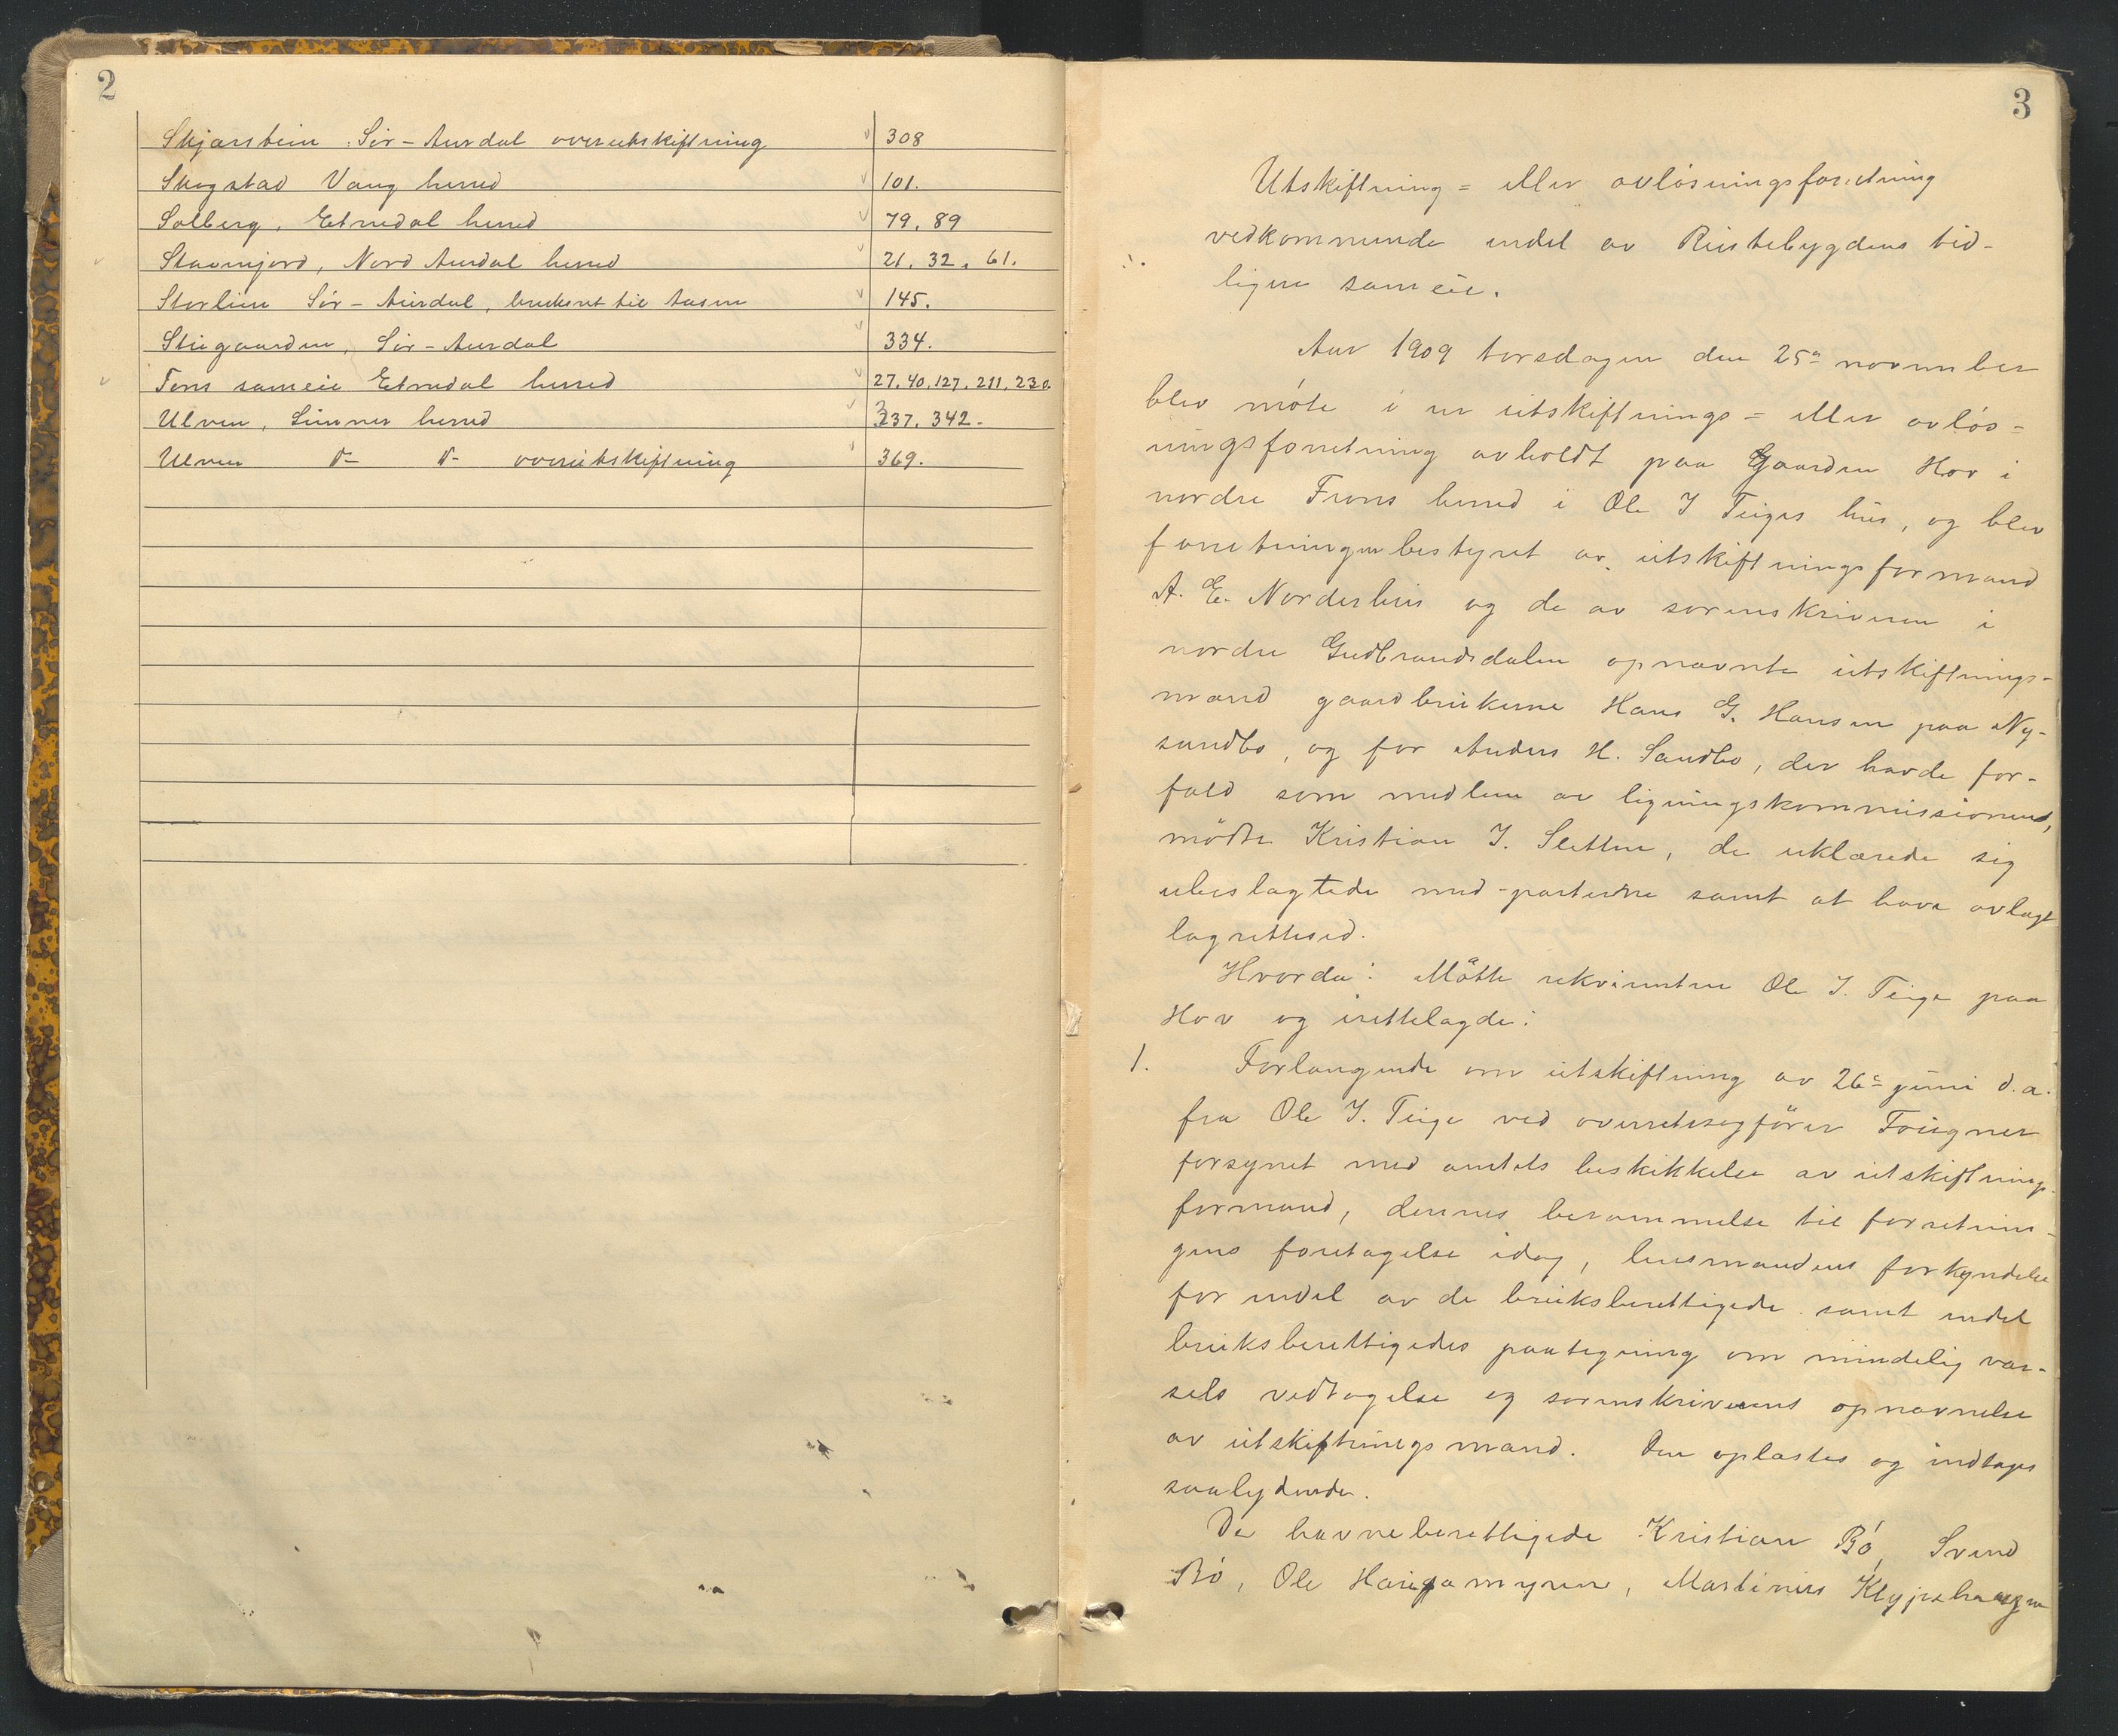 2
Skjærstein Sør-Aurdal overutskiftning 308
Skogstad Vang herred 101.
Solberg, Etnedal herred 79. 89
Stavnjord, Nord Aurdal herred 21. 32. 61.
Storlien Sør-Aurdal, bruksret til 145.
Stugaarden, Sør-Aurdal 334.
Tons sameie Etnedal herred 27. 40. 127. 211. 230.
Ulven, herred 337. 342.
Ulven d- d- overutskiftning 369.
3
Utskiftning = eller avløsningsforretning
vedkommende endel av Rustebygdens tid-
ligere sameie.
Aar 1909 torsdagen den 25de november
blev møte i en utskiftnings = eller avløs=
ningsforretning avholdt paa Gaarden Hov i
nordre Frons herred i Ole J Teiges hus, og blev
forretningen bestyret av utskiftningsformand
A. E. Norderhus og de av sorenskriveren i
nordre Gudbrandsdalen opnævnte utskiftnings-
mænd gaardbrukerne Hans G. Hansen paa Ny-
sandbo, og for Anders H. Sandbo, der havde for-
fald som medlem av ligningskommissionen,
mødte Kristian J. Sletten, de erklærede sig
ubeslægtede med parterne samt at have avlagt
lagrettesed.
Hvorda: Møtte rekvirenten Ole J. Teige paa
Hov og irettelagde:
1. Forlangende om utskiftning av 26de juni d.a.
fra Ole J. Teige ved overretssagfører Fougner
forsynet med amtets beskikkelse av utskiftnings-
formand, dennes berammelse til forretnin-
gens foretagelse idag, lensmandens forkyndelse
for endel av de bruksberettigede samt endel
bruksberettigedes paategning om mindelig var-
sels vedtagelse og sorenskriverens opnævnelse
av utskiftningsmænd. Den oplæstes og indtages
saalydende.
De havneberettigede Kristian Bø, Svend
Bø, Ole Haugamyren, Martinus Klypehaugen